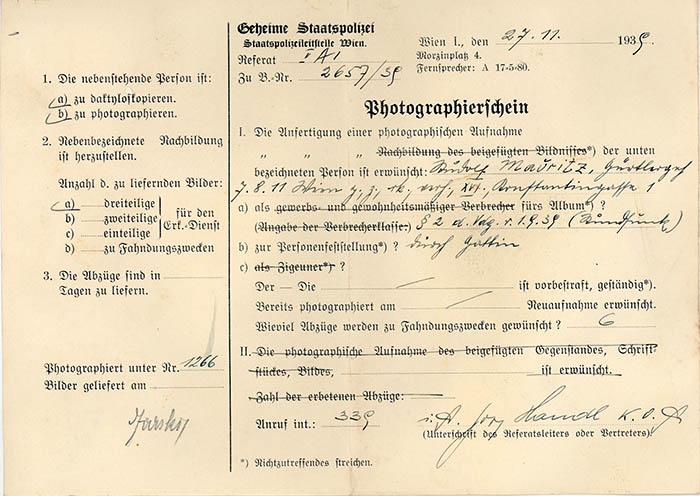 1. Die nebenstehende Person ist:
a) zu daktyloskopieren.
b) zu photographieren.
2. Nebenbezeichnete Nachbildung
ist herzustellen.
Anzahl d. zu liefernden Bilder:
a) — dreiteilige
b) — zweiteilige
c) — einteilige
für den
Erk.-Dienst
d) — zu Fahndungszwecken
3. Die Abzüge sind in
Tagen zu liefern.
Photographiert unter Nr. 1266
Bilder geliefert am
Geheime Staatspolizei
Staatspolizeileitstelle Wien.
Referat
Zu B.-Nr. 2657/39
Wien I., den 27.11. 1939.
Morzinplatz 4.
Fernsprecher: A 17-5-80.
Photographierschein
I. Die Anfertigung einer photographischen Aufnahme
" " " Nachbildung des beigefügten Bildnisses*) der unten
bezeichneten Person ist erwünscht: Rudolf Mauritz,
7.8.11 Wien Konstantingasse 1
a) als gewerbs- und gewohnheitsmäßiger Verbrecher fürs Album*) ?
(Angabe der Verbrecherklasse: § 2 d. 1.9.39 (Rundfunk)
b) zur Personenfeststellung*) ? durch Gattin
c) als Zigeuner*) ?
Der — Die — ist vorbestraft, geständig*).
Bereits photographiert am — Neuaufnahme erwünscht.
Wieviel Abzüge werden zu Fahndungszwecken gewünscht ? 6
II. Die photographische Aufnahme des beigefügten Gegenstandes, Schrift-
stückes, Bildes, ist erwünscht.
Zahl der erbetenen Abzüge:
Anruf int.: 339
(Unterschrift des Referatsleiters oder Vertreters).
*) Nichtzutreffendes streichen.